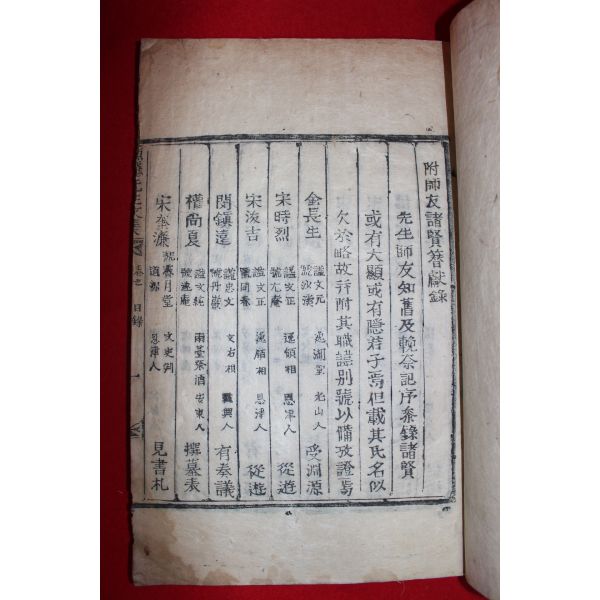 附師友諸賢簪獻錄
先生師友知舊及輓祭記序叅錄諸賢
或有大顯或有隱君子焉但載其氏名似
欠於略故行附其職諡別號以備攷證焉
金長生 諡文元 號沙溪 光山人 受淵源
宋時烈 諡文正 號尤菴 領相 恩津人 從遊
宋浚吉 諡文正 號同春 領相 恩津人 從遊
閔鎭遠 諡忠文 號丹巖 文右相 驪興人 有奏議
權尙夏 諡文純 號遂庵 安東人 撰墓表
宋 號霽月堂 文 恩津人 見書札
目錄 一